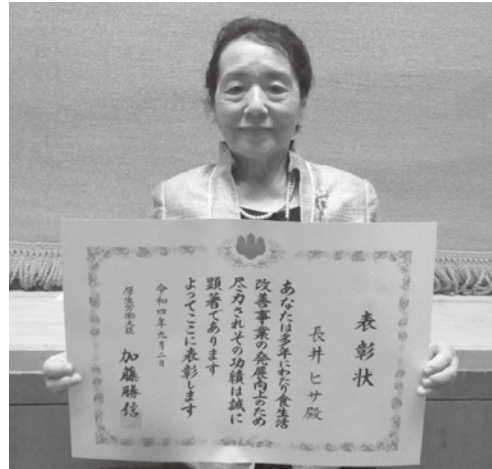 表彰状
長井ヒサ殿
あなたは多年にわたり食生活
改善事業の発展向上のため
尽力されその功績は誠に
顕著であります
よってここに表彰します
令和四年九月二日
厚生労働大臣 加藤勝信